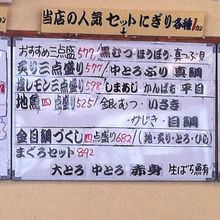 当店の人気セットにぎり各種
おすすめ三点盛り577/黒むつ・ほうぼう・真つぶ貝
炙り三点盛り577/中とろぶり 真鯛
塩レモン三点盛り598/しまあじ かんぱち 平目
地魚四点盛り525/銀むつ・いさき
かじき・目鯛
金目鯛づくし四点盛り682/(炙・とろ・ひら)
まぐろセット892
大とろ 中とろ 赤身 生ばち鮪有